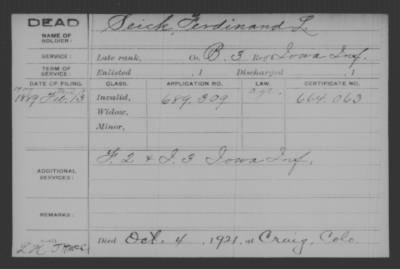 DEAD
NAME OF SOLDIER: Seick, Ferdinand L.
SERVICE: Late rank, Co. B, 3 Reg't Iowa Inf.
TERM OF SERVICE: Enlisted , 1 Discharged , 1
DATE OF FILING. CLASS. APPLICATION NO. LAW. CERTIFICATE NO.
1889 Feb. 13 Invalid, 689.309 664.063
Widow,
Minor,
ADDITIONAL SERVICES: F. 2 & I. 3 Iowa Inf.
REMARKS:
Died Oct. 4, 1921, at Craig, Colo.